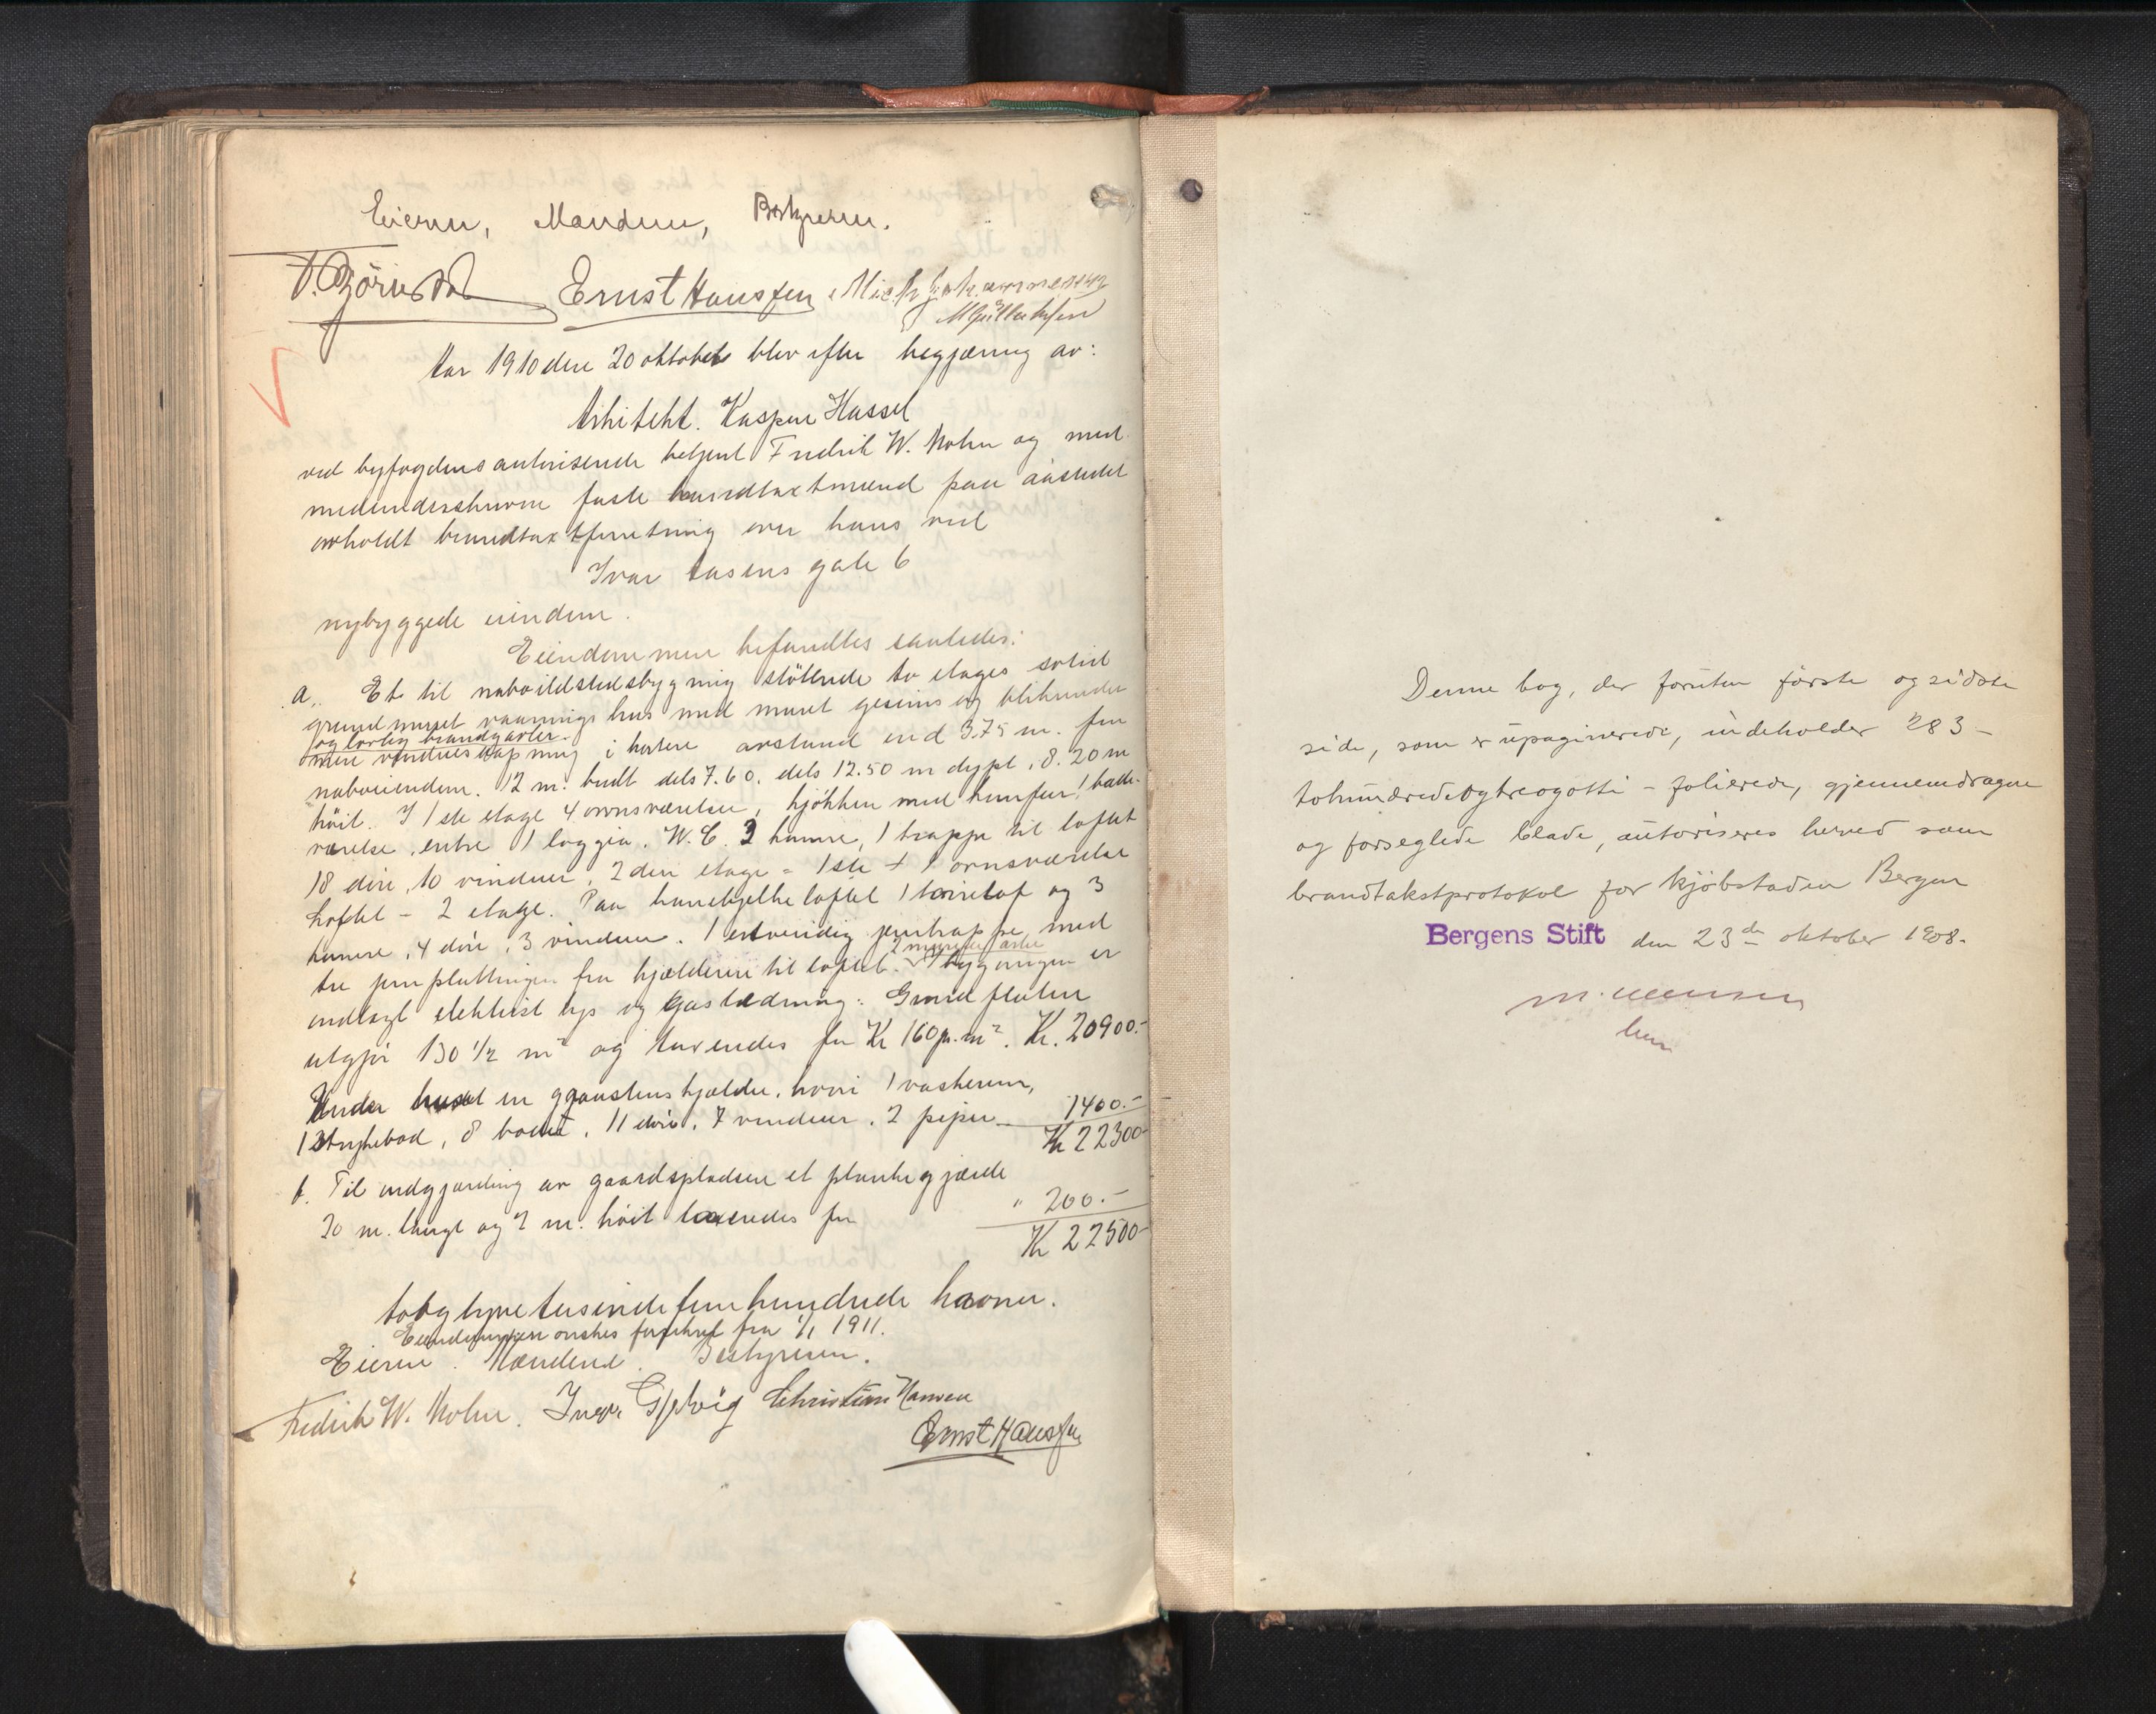 Eieren, Mændene, Bestyreren.
Ernst Hanssen
Aar 1910 den 20 oktober blev efter begjæring av:
Arkitekt. Kaspar Hassel
ved byfogdens autoriserede betjent Fredrik W. Mohn og med
medunderskrevne faste brandtaxtmænd paa aastedet
avholdt brandtaxtforretning over hans ved
Ivar Aasens gate 6
nybyggede eiendom.
Eiendommen befandtes saaledes:
a. Et til naboildstedsbygning stötende to etages solid
grundmuret vaaningshus med muret gesims og
og lovlig brandgavler.
i kortere avstand end 3.75 m. fra
naboeiendom. 12 m. bredt dels 7.60. dels 12.50 m dypt, 8.20 m
höit. I 1ste etage 4 ovnsværelser, kjökken med komfur, 1 bade-
værelse, entre 1 loggia. W.C. 3 kamre, 1 trappe til loftet
18 döre, 10 vinduer, 2den etage = 1ste + 1 ovnsværelse
Loftet = 2 etage. Paa hanebjelkeloftet 1 törreloft og 3
kamre, 4 döre, 3 vinduer. 1 utvendig jerntrappe med
2 murede arke
tre jernplattinger fra kjælderen til loftet. I bygningen er
indlagt elektrisk lys og gasledning. Grundflaten
utgjör 130 1/2 m² og taxeredes for Kr 160 p. m². Kr. 20900.-
Under huset en graastenskjælder, hvori 1 vaskerum,
1 strykebod, 8 boder, 11 döre, 7 vinduer, 2 piper 1400.-
Kr 22300-
b. Til indgjærding av gaardspladsen et plankegjærde
20 m. langt og 2 m. höit taxeredes for " 200.-
Kr 22500-
toogtyvetusindefemhundrede kroner.
Eiendommen önskes forsikret fra 1/1 1911.
Eieren. Mændene. Bestyreren.
Fredrik W. Mohn. Christian Hansen
Ernst Hanssen
Denne bog, der foruten förste og sidste
side, som er upaginerede, indeholder 283 -
tohundredeogtreogotti - folierede, gjennemdragne
og forseglede blade, autoriseres herved som
brandtakstprotokol for kjöbstaden Bergen
Bergens Stift den 23de oktober 1908.